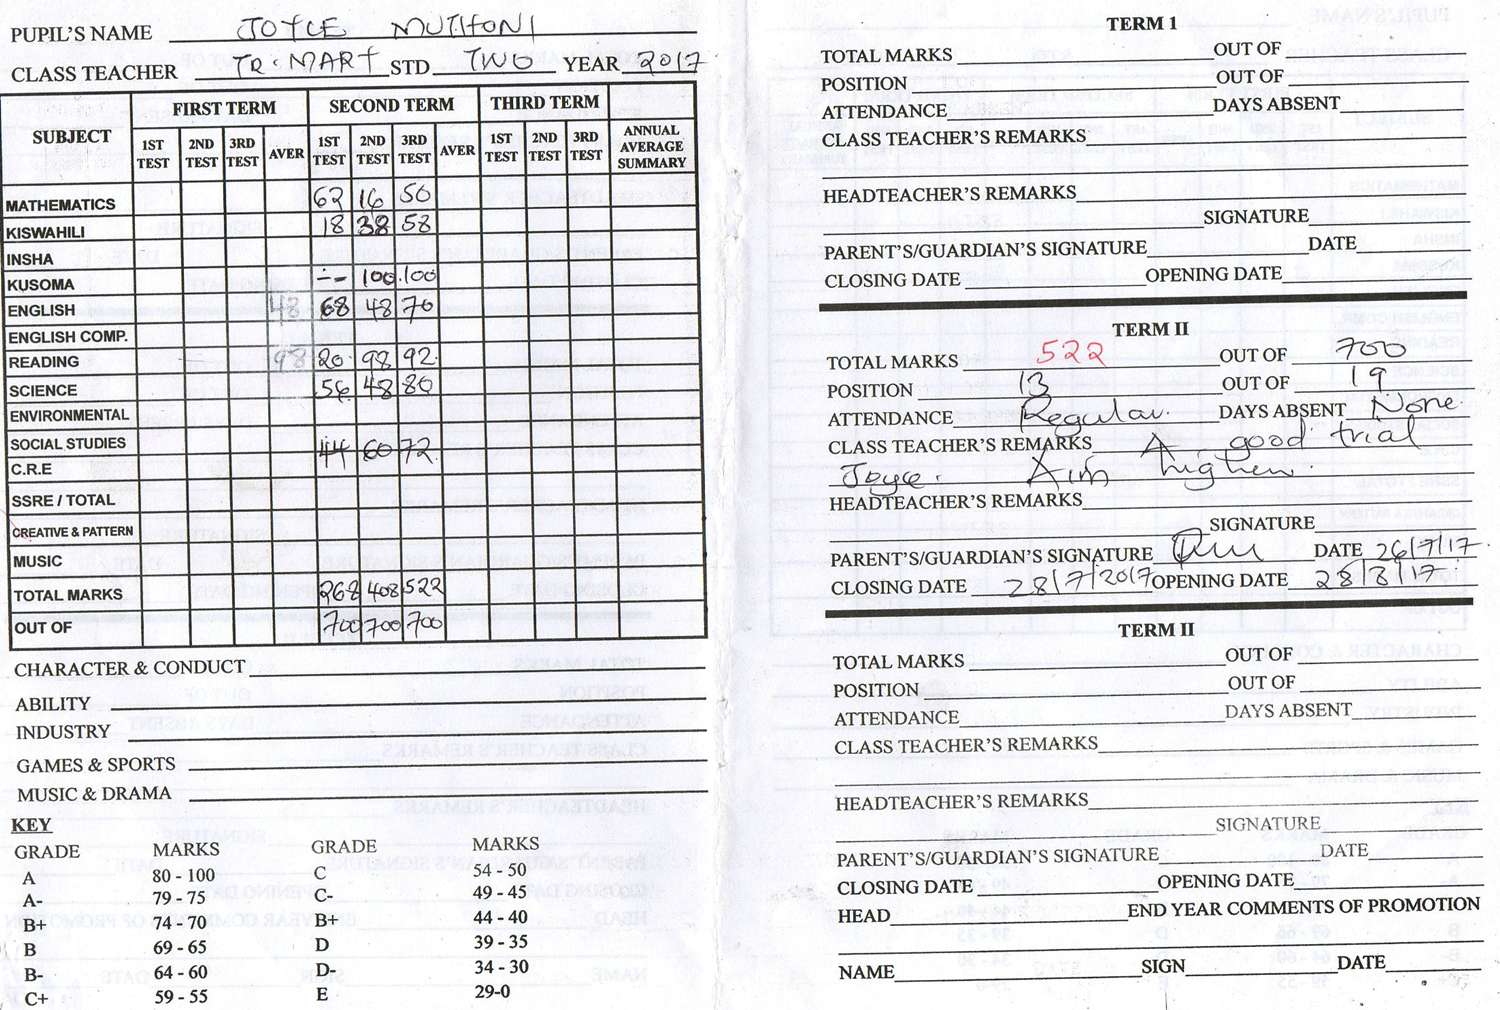 PUPIL'S NAME JOYCE MUTHONI
CLASS TEACHER TR. MART STD TWO YEAR 2017
SUBJECT FIRST TERM SECOND TERM THIRD TERM ANNUAL AVERAGE SUMMARY
1ST TEST 2ND TEST 3RD TEST AVER 1ST TEST 2ND TEST 3RD TEST AVER 1ST TEST 2ND TEST 3RD TEST
MATHEMATICS 62 16 50
KISWAHILI 18 38 58
INSHA
KUSOMA -- 100. 100
ENGLISH 48 68 48 70
ENGLISH COMP.
READING 98 20 98 92
SCIENCE 56 48 80
ENVIRONMENTAL
SOCIAL STUDIES 44 60 72
C.R.E
SSRE / TOTAL
CREATIVE & PATTERN
MUSIC
TOTAL MARKS 268 408 522
OUT OF 700 700 700
CHARACTER & CONDUCT
ABILITY
INDUSTRY
GAMES & SPORTS
MUSIC & DRAMA
KEY
GRADE MARKS GRADE MARKS
A 80 - 100 C 54 - 50
A- 79 - 75 C- 49 - 45
B+ 74 - 70 B+ 44 - 40
B 69 - 65 D 39 - 35
B- 64 - 60 D- 34 - 30
C+ 59 - 55 E 29-0
TERM 1
TOTAL MARKS OUT OF
POSITION OUT OF
ATTENDANCE DAYS ABSENT
CLASS TEACHER'S REMARKS
HEADTEACHER'S REMARKS
SIGNATURE
PARENT'S/GUARDIAN'S SIGNATURE DATE
CLOSING DATE OPENING DATE
TERM II
TOTAL MARKS 522 OUT OF 700
POSITION 13 OUT OF 19
ATTENDANCE Regular. DAYS ABSENT None.
CLASS TEACHER'S REMARKS A good trial
Joyce. Aim higher.
HEADTEACHER'S REMARKS
SIGNATURE
PARENT'S/GUARDIAN'S SIGNATURE DATE 26/7/17.
CLOSING DATE 28/7/2017 OPENING DATE 28/8/17.
TERM II
TOTAL MARKS OUT OF
POSITION OUT OF
ATTENDANCE DAYS ABSENT
CLASS TEACHER'S REMARKS
HEADTEACHER'S REMARKS
SIGNATURE
PARENT'S/GUARDIAN'S SIGNATURE DATE
CLOSING DATE OPENING DATE
HEAD END YEAR COMMENTS OF PROMOTION
NAME SIGN DATE